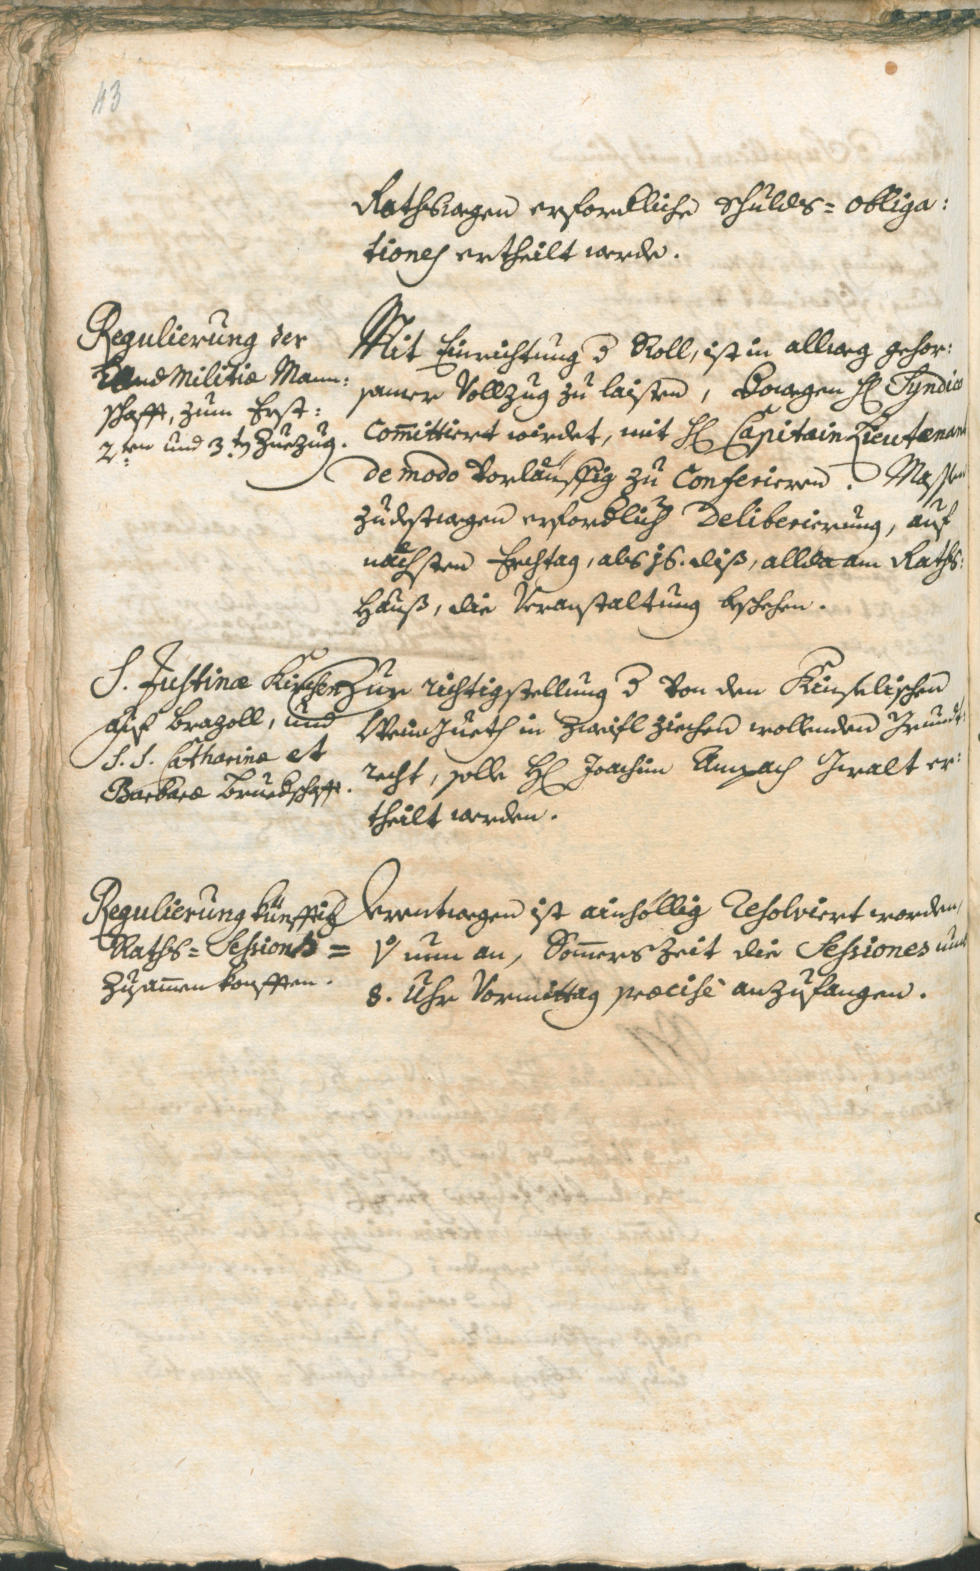 43
Rathswegen erfordliche Schulds= Obliga:
tiones ertheilt werde.
Regulierung der
Land Militiæ Mann:
schafft, zum Erst:
2ten und 3ten Zuezug.
Mit Einrichtung d Roll, ist in allweg gehor:
samer Vollzug zu laisten, dowegen H Syndico
Committiert würdet, mit H Capitain Lieutenant
de modo vorläuffig zu Conferieren. Massen
zu deswegen erfordlich Deliberierung, auf
nächsten Erchtag, als 16. diß, allda am Raths:
Hauß, die Veranstaltung beschehen.
S. Justinæ Kirchen
auf Brazoll, und
S. S. Catharinæ et
Barbaræ Bruedschafft.
Zur richtigstellung d von den Künselischen
Weingueth in Zweifl ziechen wollenden Grundt:
recht, solle H Joachim Ampach Gwalt er:
theilt werden.
Regulierung künfftig
Raths= Sessions=
Zusammenkonfften.
Derentwegen ist ainhöllig Resolviert worden,
von nun an, Sommers Zeit die Sessiones umb
8. Uhr Vormittag præcise anzufangen.